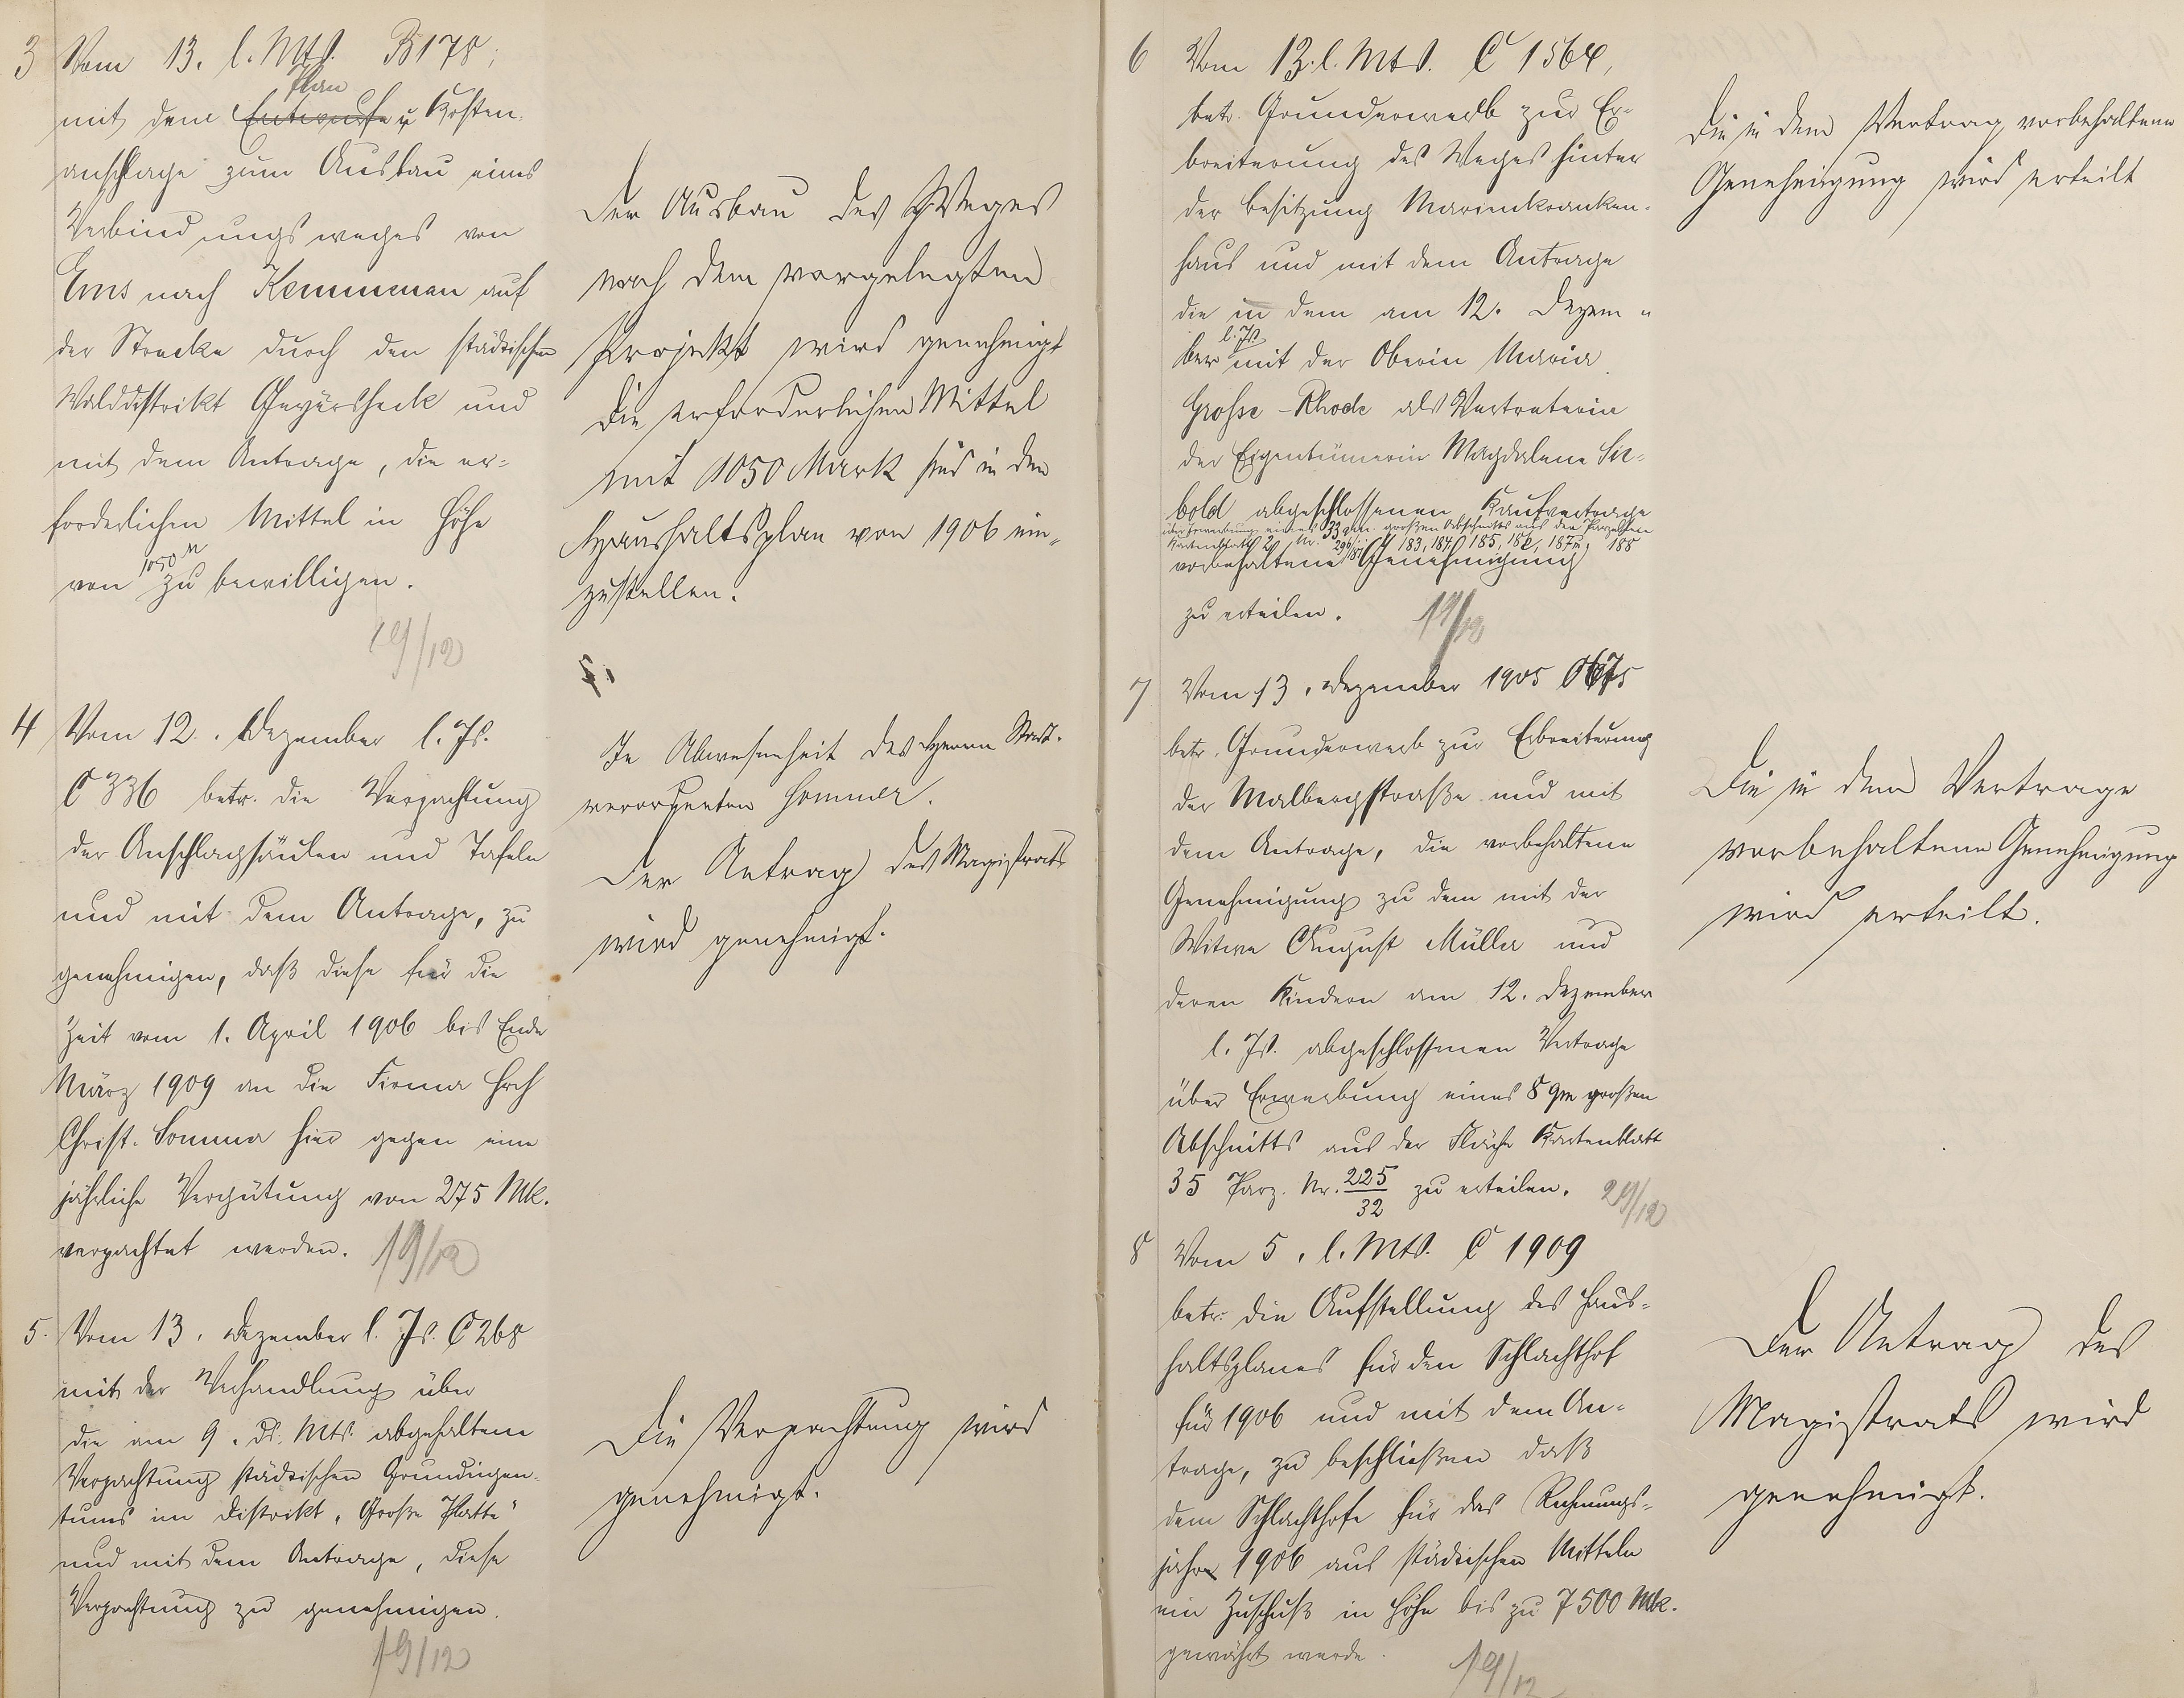 3 Vom 13. l. Mts. B 178,
Plan
mit dem Entwurfe u Kosten-
anschlage zum Ausbau eines
Verbindungsweges von
Ems nach Kemmenau auf
der Strecke durch den städtischen
Walddistrikt und
mit dem Antrage, die er-
forderlichen Mittel in Höhe
1050 M
von zu bewilligen.
19/12
Der Ausbau des Weges
nach dem vorgelegten
Projekt wird genehmigt
Die erforderlichen Mittel
mit 1050 Mark sind in den
Haushaltsplan von 1906 ein-
zustellen.
4 Vom 12. Dezember l. Js.
C 336 betr. die Verpachtung
der Anschlagsäulen und Tafeln
und mit dem Antrage, zu
genehmigen, daß diese für die
Zeit vom 1. April 1906 bis Ende
März 1909 an die Firma Hrch
Christ. Sommer hier gegen eine
jährliche Vergütung von 275 Mk.
verpachtet werden.
19/12
In Abwesenheit des Herrn Stadt-
verordneten Sommer.
Der Antrag des Magistrats
wird genehmigt.
5. Vom 13. Dezember l. Js. C 268
mit der Verhandlung über
die am 9. ds. Mts. abgehaltene
Verpachtung städtischen Grundeigen-
tums im Distrikt „Große Platte"
und mit dem Antrage, diese
Verpachtung zu genehmigen.
19/12
Die Verpachtung wird
genehmigt.
6 Vom 12. l. Mts. C 1564,
betr. Grunderwerb zur Er-
breiterung des Weges hinter
der Besitzung Marienkranken-
haus und mit dem Antrage
die in dem am 12. Dezem-
l. Js
ber mit der Oberin Maria
Grosse-Rhode als Vertreterin
der Eigentümerin Magdalena Sie-
bold abgeschlossenen Kaufvertrage
über Erwerbung eines 33 qm. großen Abschnitts aus den Parzellen
Kartenblatt 2 Nr. 183, 184, 185, 186, 187 u. 188
vorbehaltene Genehmigung
zu erteilen.
19/12
Die in dem Vertrag vorbehaltene
Genehmigung wird erteilt
7 Vom 13. Dezember 1905
betr. Grunderwerb zur Erbreiterung
der Malbergstraße und mit
dem Antrage, die vorbehaltene
Genehmigung zu dem mit der
Witwe August Müller und
deren Kindern am 12. Dezember
l. Js. abgeschlossenen Vertrage
über Erwerbung eines 8 qm großen
Abschnitts aus der Fläche Kartenblatt
35 Parz. Nr. 225/32 zu erteilen.
29/12
Die in dem Vertrage
vorbehaltene Genehmigung
wird erteilt.
8 Vom 5. l. Mts. C 1909
betr. die Aufstellung des Haus-
haltsplanes für den Schlachthof
für 1906 und mit dem An-
trage, zu beschließen daß
dem Schlachthofe für das Rechnungs-
jahr 1906 aus städtischen Mitteln
ein Zuschuß in Höhe bis zu 7500 Mk.
gewährt werde.
19/12
Der Antrag des
Magistrats wird
genehmigt.